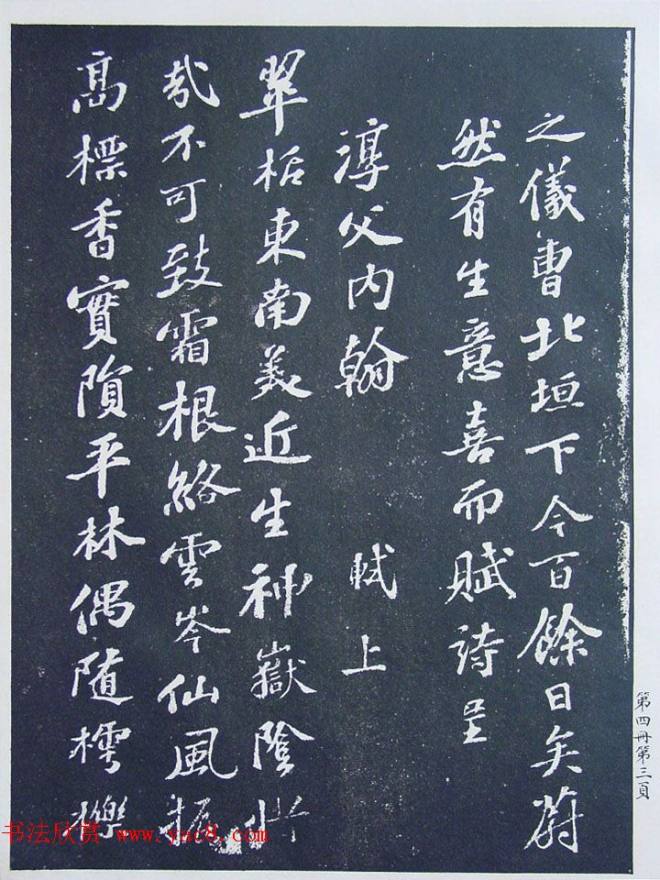 之儀曹北垣下今百餘日矣蔚
然有生意喜而賦詩呈
淳父内翰　軾上
翠栝東南美近生神嶽陰惜
哉不可致霜根絡雲岑仙風振
高標香實隕平林偶隨樗櫟
第四冊第三頁
书法欣赏 www.yac8.com